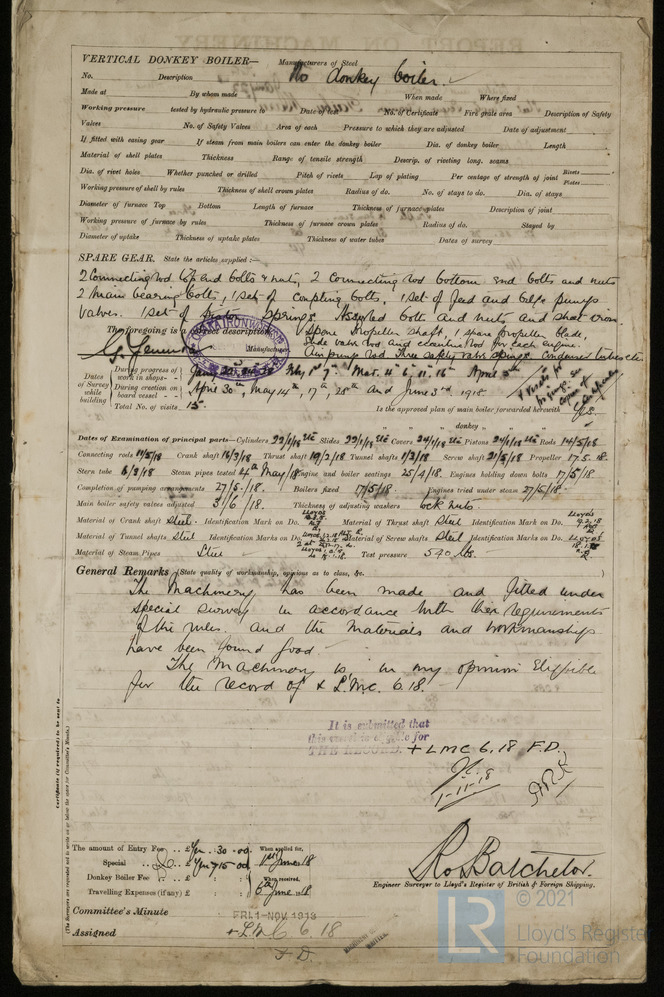 VERTICAL DONKEY BOILER— Manufacturers of Steel
No. Description No donkey boiler.
Made at By whom made When made Where fixed
Working pressure tested by hydraulic pressure to Date of test No. of Certificate Fire grate area Description of Safety
Valves No. of Safety Valves Area of each Pressure to which they are adjusted Date of adjustment
If fitted with easing gear If steam from main boilers can enter the donkey boiler Dia. of donkey boiler Length
Material of shell plates Thickness Range of tensile strength Descrip. of riveting long. seams
Dia. of rivet holes Whether punched or drilled Pitch of rivets Lap of plating Per centage of strength of joint Rivets Plates
Working pressure of shell by rules Thickness of shell crown plates Radius of do. No. of stays to do. Dia. of stays
Diameter of furnace Top Bottom Length of furnace Thickness of furnace plates Description of joint
Working pressure of furnace by rules Thickness of furnace crown plates Radius of do. Stayed by
Diameter of uptake Thickness of uptake plates Thickness of water tubes Dates of survey
SPARE GEAR. State the articles supplied :—
2 Connecting rod top end bolts & nuts, 2 connecting rod bottom end bolts and nuts
2 Main bearing bolts, 1 set of coupling bolts, 1 set of feed and bilge pumps
valves. 1 set of piston springs. Assorted bolts and nuts and sheet iron
The foregoing is a correct description, Spare propeller shaft, 1 spare propeller blade,
Slide valve rod and eccentric rod for each engine.
Manufacturer. Air pump rod Three safety valve springs. Condenser tubes etc.
Dates of Survey while building
During progress of work in shops - -
During erection on board vessel - - April 30th, May 14th, 17th, 28th and June 3rd, 1918
Total No. of visits 15. Is the approved plan of main boiler forwarded herewith
" " donkey " " "
Dates of Examination of principal parts—Cylinders 22/1/18 Slides 22/1/18 Covers 24/1/18 Pistons 24/1/18 Rods 14/5/18
Connecting rods 14/5/18 Crank shaft 16/3/18 Thrust shaft 19/2/18 Tunnel shafts 11/3/18 Screw shaft 21/5/18 Propeller 17.5.18.
Stern tube 6/3/18 Steam pipes tested 4th May/18 Engine and boiler seatings 25/4/18 Engines holding down bolts 17/5/18
Completion of pumping arrangements 27/5/18 Boilers fixed 17/5/18 Engines tried under steam 27/5/18
Main boiler safety valves adjusted 3/6/18 Thickness of adjusting washers lock nuts
Material of Crank shaft Steel. Identification Mark on Do. Material of Thrust shaft Steel Identification Mark on Do.
Material of Tunnel shafts Steel Identification Marks on Do. Material of Screw shafts Steel Identification Marks on Do.
Material of Steam Pipes Steel Test pressure 540 lbs.
General Remarks (State quality of workmanship, opinions as to class, &c.
The Machinery has been made and fitted under
special survey in accordance with the requirements
of the rules. and the Materials and workmanship
have been found good.
The Machinery is in my opinion eligible
for the record of + L.M.C. 6.18.
It is submitted that
this vessel is eligible for
THE RECORD. + LMC 6,18 F.D.
1-11-18
The amount of Entry Fee .. £ Yen 30.00 When applied for,
Special .. .. £ 1st June 18
Donkey Boiler Fee .. £ : : When received,
Travelling Expenses (if any) £ : : 6th June 18
R. Batchelor.
Engineer Surveyor to Lloyd's Register of British & Foreign Shipping.
Committee's Minute FRI. 1-NOV. 1918
Assigned + L.M.C 6.18
F.D.
Certificate (if required) to be sent to
(The Surveyors are requested not to write on or below the space for Committee's Minute.)
© 2021
Lloyd's Register
Foundation
LR